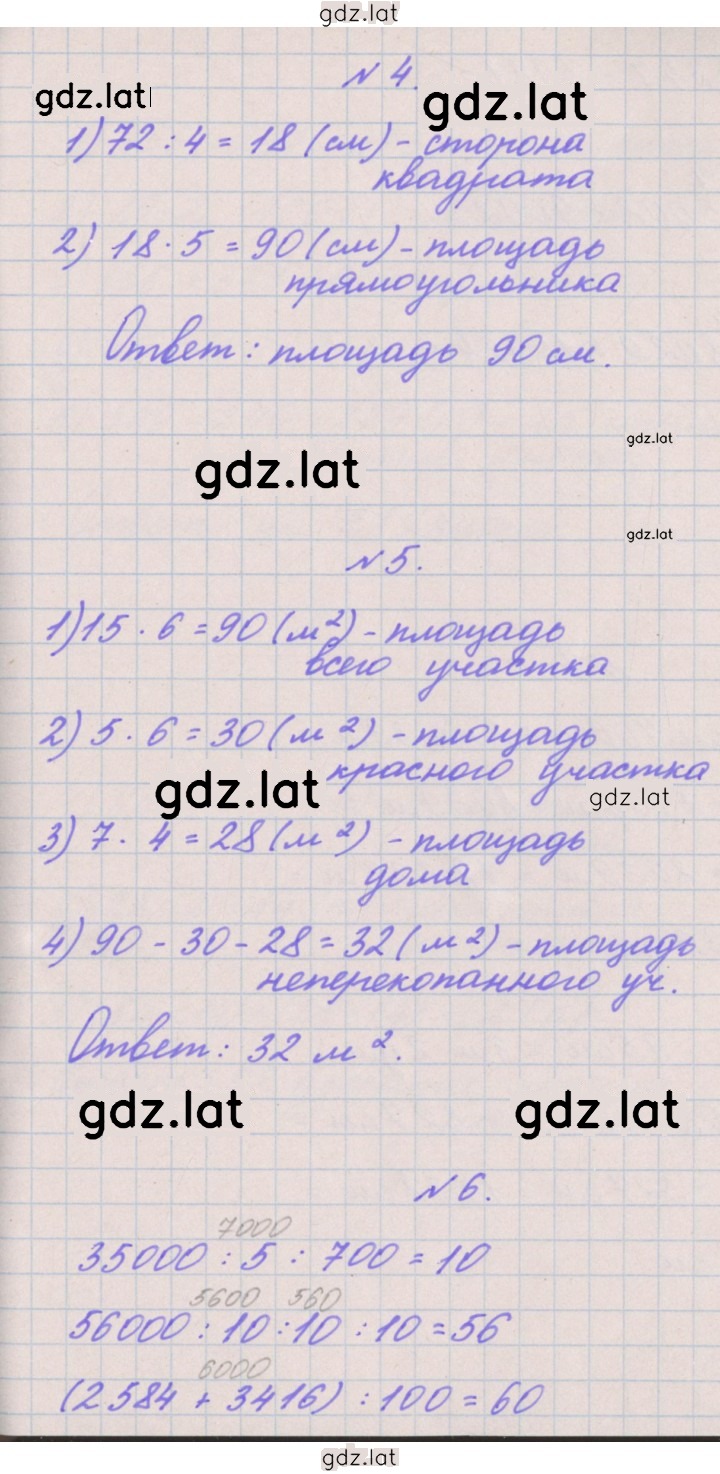 gdz.lat
№ 4.
gdz.lat
gdz.lat
1) 72 : 4 = 18 (см) - сторона
квадрата
2) 18 · 5 = 90 (см) - площадь
прямоугольника
Ответ: площадь 90 см.
gdz.lat
gdz.lat
gdz.lat
№ 5.
1) 15 · 6 = 90 (м²) - площадь
всего участка
2) 5 · 6 = 30 (м²) - площадь
красного участка
gdz.lat
gdz.lat
3) 7 · 4 = 28 (м²) - площадь
дома
4) 90 - 30 - 28 = 32 (м²) - площадь
неперекопанного уч.
Ответ: 32 м².
gdz.lat
gdz.lat
№ 6.
7000
35000 : 5 : 700 = 10
5600 560
56000 : 10 : 10 : 10 = 56
6000
(2584 + 3416) : 100 = 60
gdz.lat